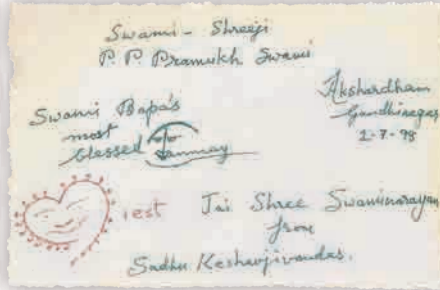 Swami - Shreeji
P. P. Pramukh Swami
Akshardham
Gandhinagar
2-7-98
Swami Bapa's
most
blessed Tanmay
iest Jai Shree Swaminarayan
from
Sadhu Keshavjivandas.